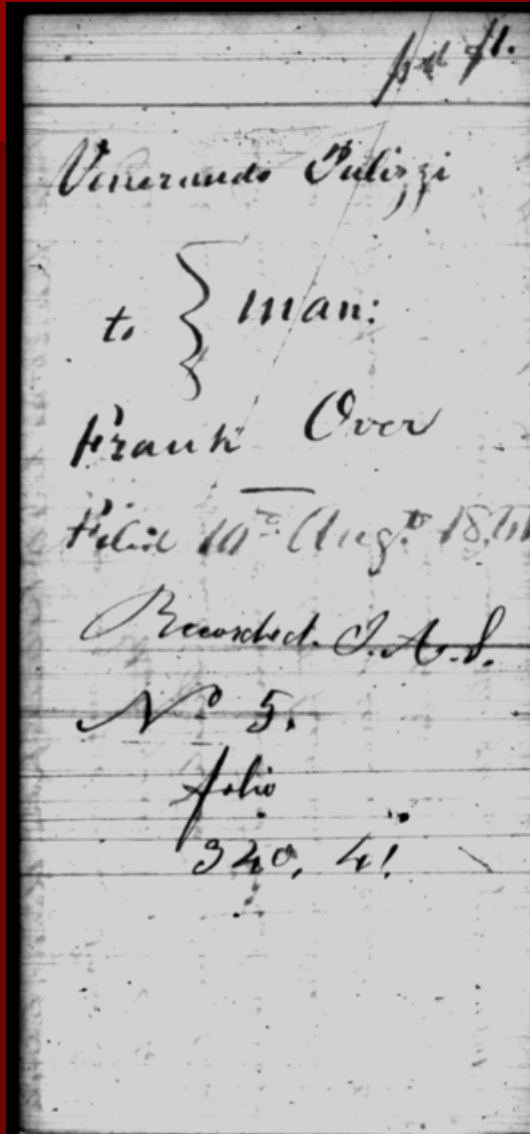 pd $1.
Venerando Pulizzi
to } Man:
Frank Over
Filed 10th Augt
Recorded. J.A.S.
No 5.
folio
340, 41